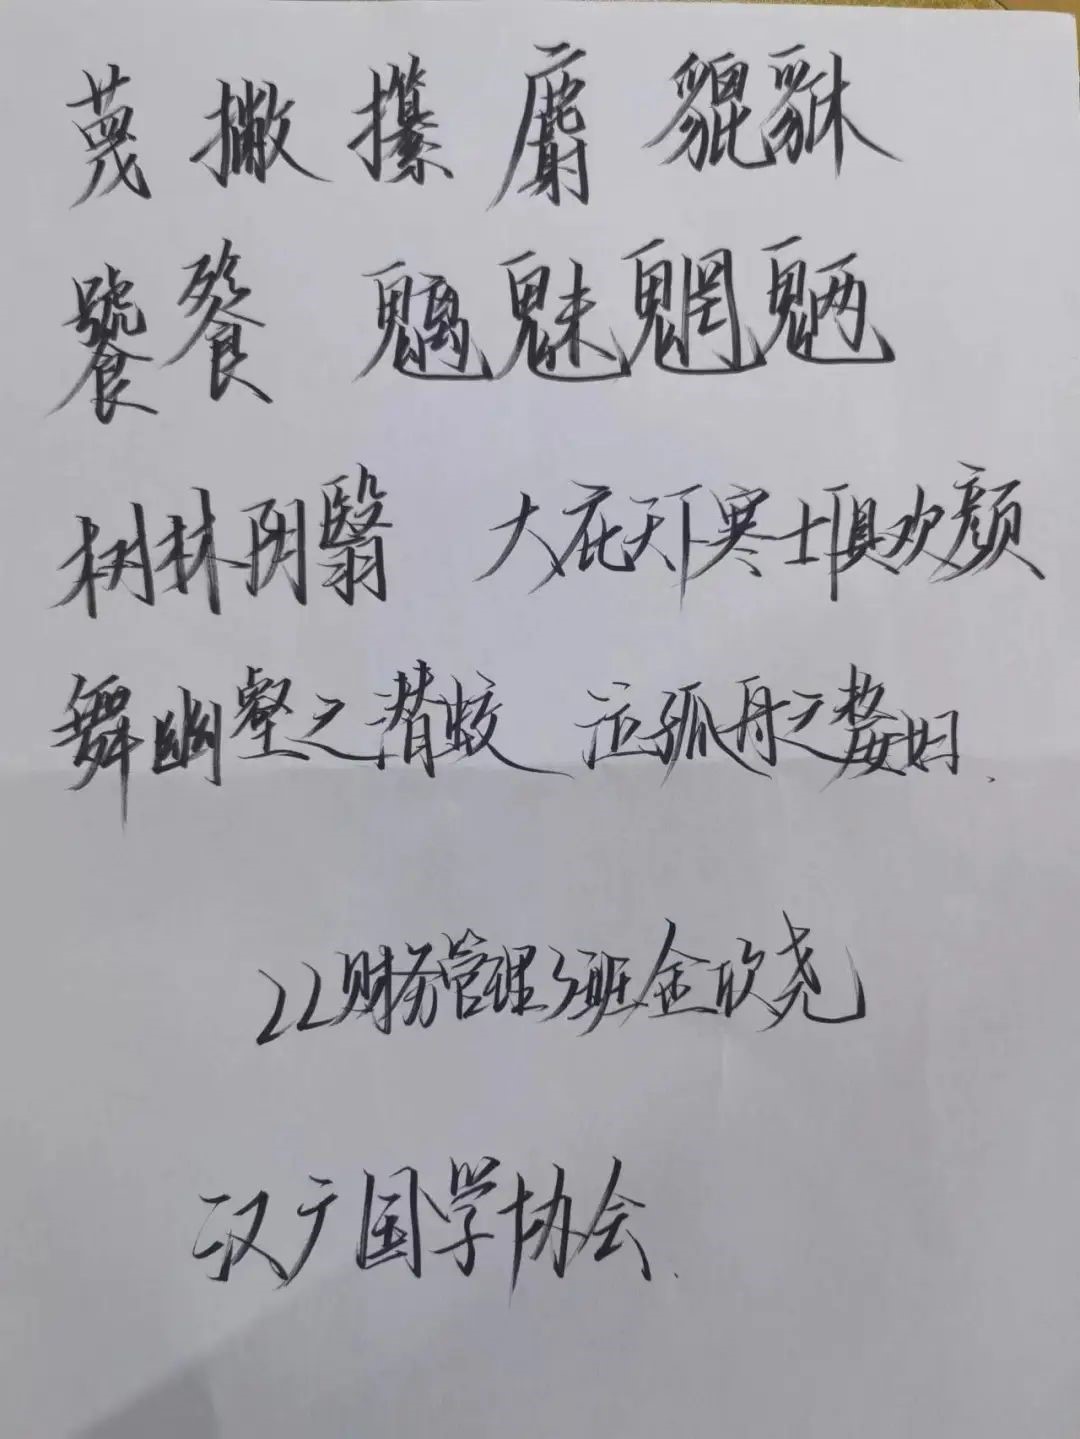 蔑 撇 攥 麝 貔貅
饕餮 魑魅魍魉
树林阴翳 大庇天下寒士俱欢颜
舞幽壑之潜蛟 泣孤舟之嫠妇.
22财务管理3班金欣尧
汉广国学协会.